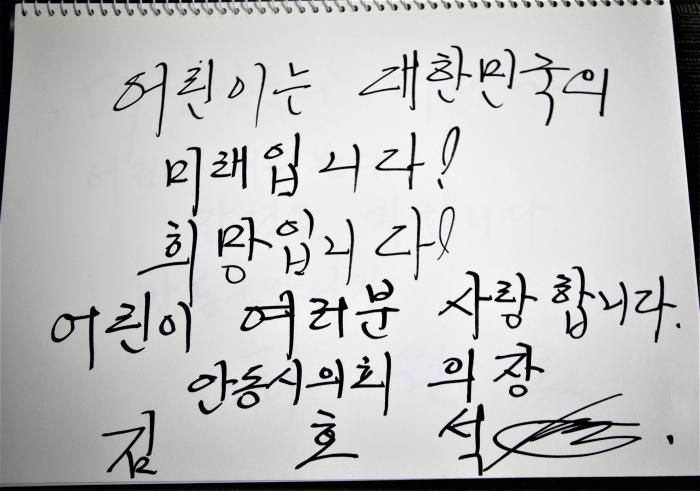 어린이는 대한민국의
미래입니다!
희망입니다!
어린이 여러분 사랑합니다.
안동시의회 의장
김 호 석